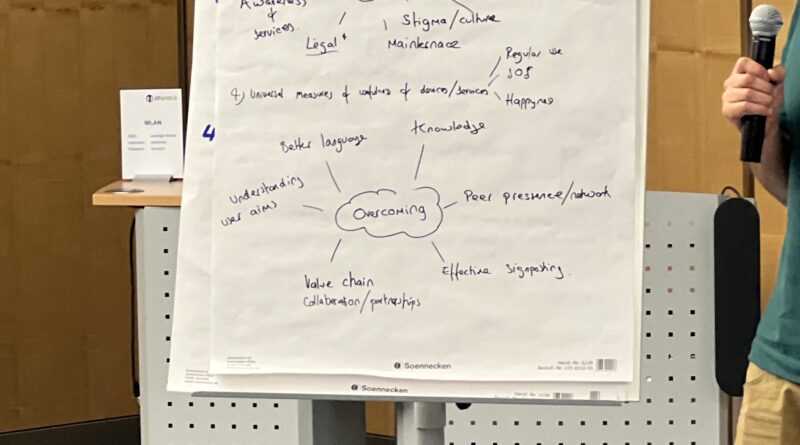 Awareness
&
services.
Legal
Stigma/culture
Mainternace
Universal measures of usefulness of devices/services
Regular use
Happyness
4
Better language
Knowledge
Understanding
user aims
Overcoming
Peer presence/network
Value chain
Collaboration/partnerships
Effective signposting.
WLAN
Soennecken
Soennecken